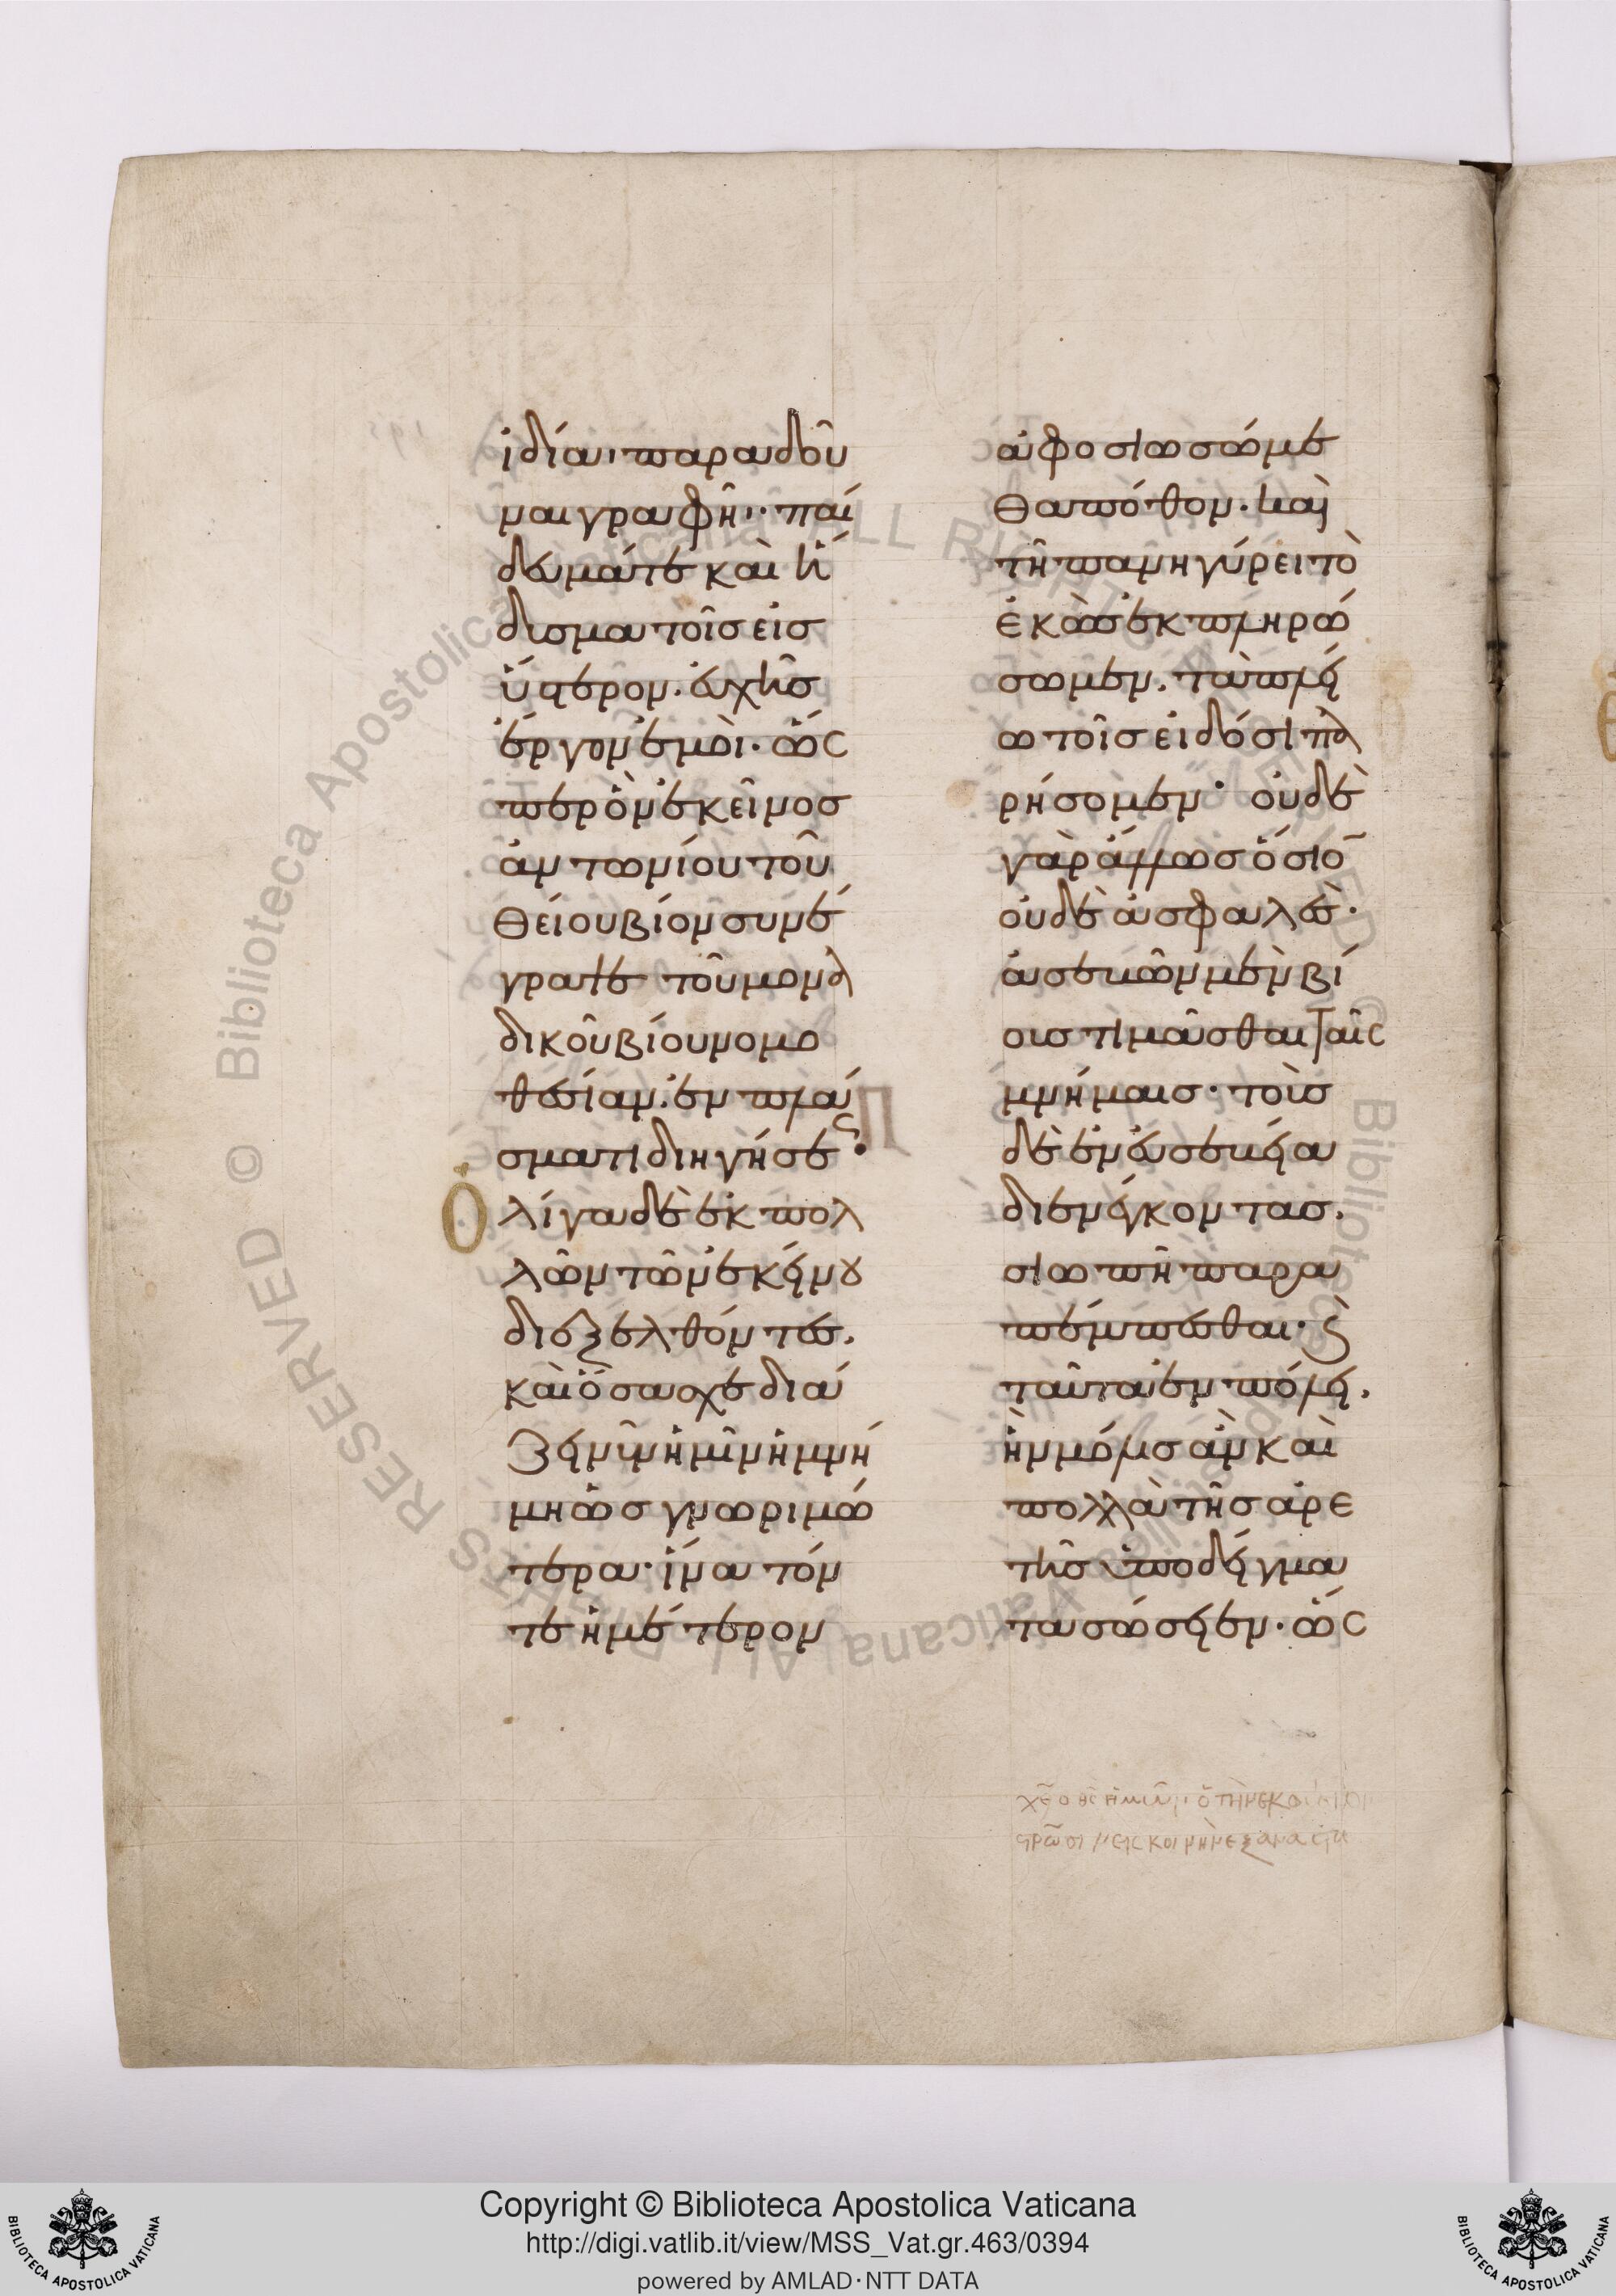 ἰδίαι παραδοῦ
ναι γραφῆι· παί
δευμά τε καὶ ἥ
δυσμα τοῖς εἰς
ὕστερον. εὐχῆς
ἔργον ἐμοὶ· ὥς
περ ὃν ἐκεῖνος
ἀντωνίου τοῦ
θείου βίον συνέ
γραψε τοῦ μονα
δικοῦ βίου νομο
θεσίαν. ἐν πλά
σματι διηγήσεως·
Ὀλίγα δὲ ἐκ πολ
λῶν τῶν ἐκείνου
διεξελθόντες.
καὶ ὅσα σχεδιά
ζειν ἡμῖν ἡ μνή
μη ὡς γνωριμώ
τερα· ἵνα τόν
τε ἡμέτερον
ἀφοσιωσώμε
θα πόθον. καὶ
τῆ πανηγύρει τὸ
εἰκὸς ἐκπληρώ
σωμεν. τὰ πλεί
ω τοῖς εἰδόσι πα
ρήσομεν· οὐδὲ
γὰρ ἄλλως ὅσιον
οὐδὲ ἀσφαλὲς·
ἀσεβῶν μὲν βί
οις τιμᾶσθαι ταῖς
μνήμαις· τοὺς
δὲ ἐν εὐσεβείᾳ
διενέγκοντας.
σιωπῆ παρα
πέμπεσθαι· καὶ
ταῦτα ἐν πόλει.
ἣν μόλις ἂν καὶ
πολλὰ τῆς ἀρε
τῆς ὑποδείγμα
τα σώσειεν· ὥς
Copyright © Biblioteca Apostolica Vaticana
http://digi.vatlib.it/view/MSS_Vat.gr.463/0394
powered by AMLAD·NTT DATA